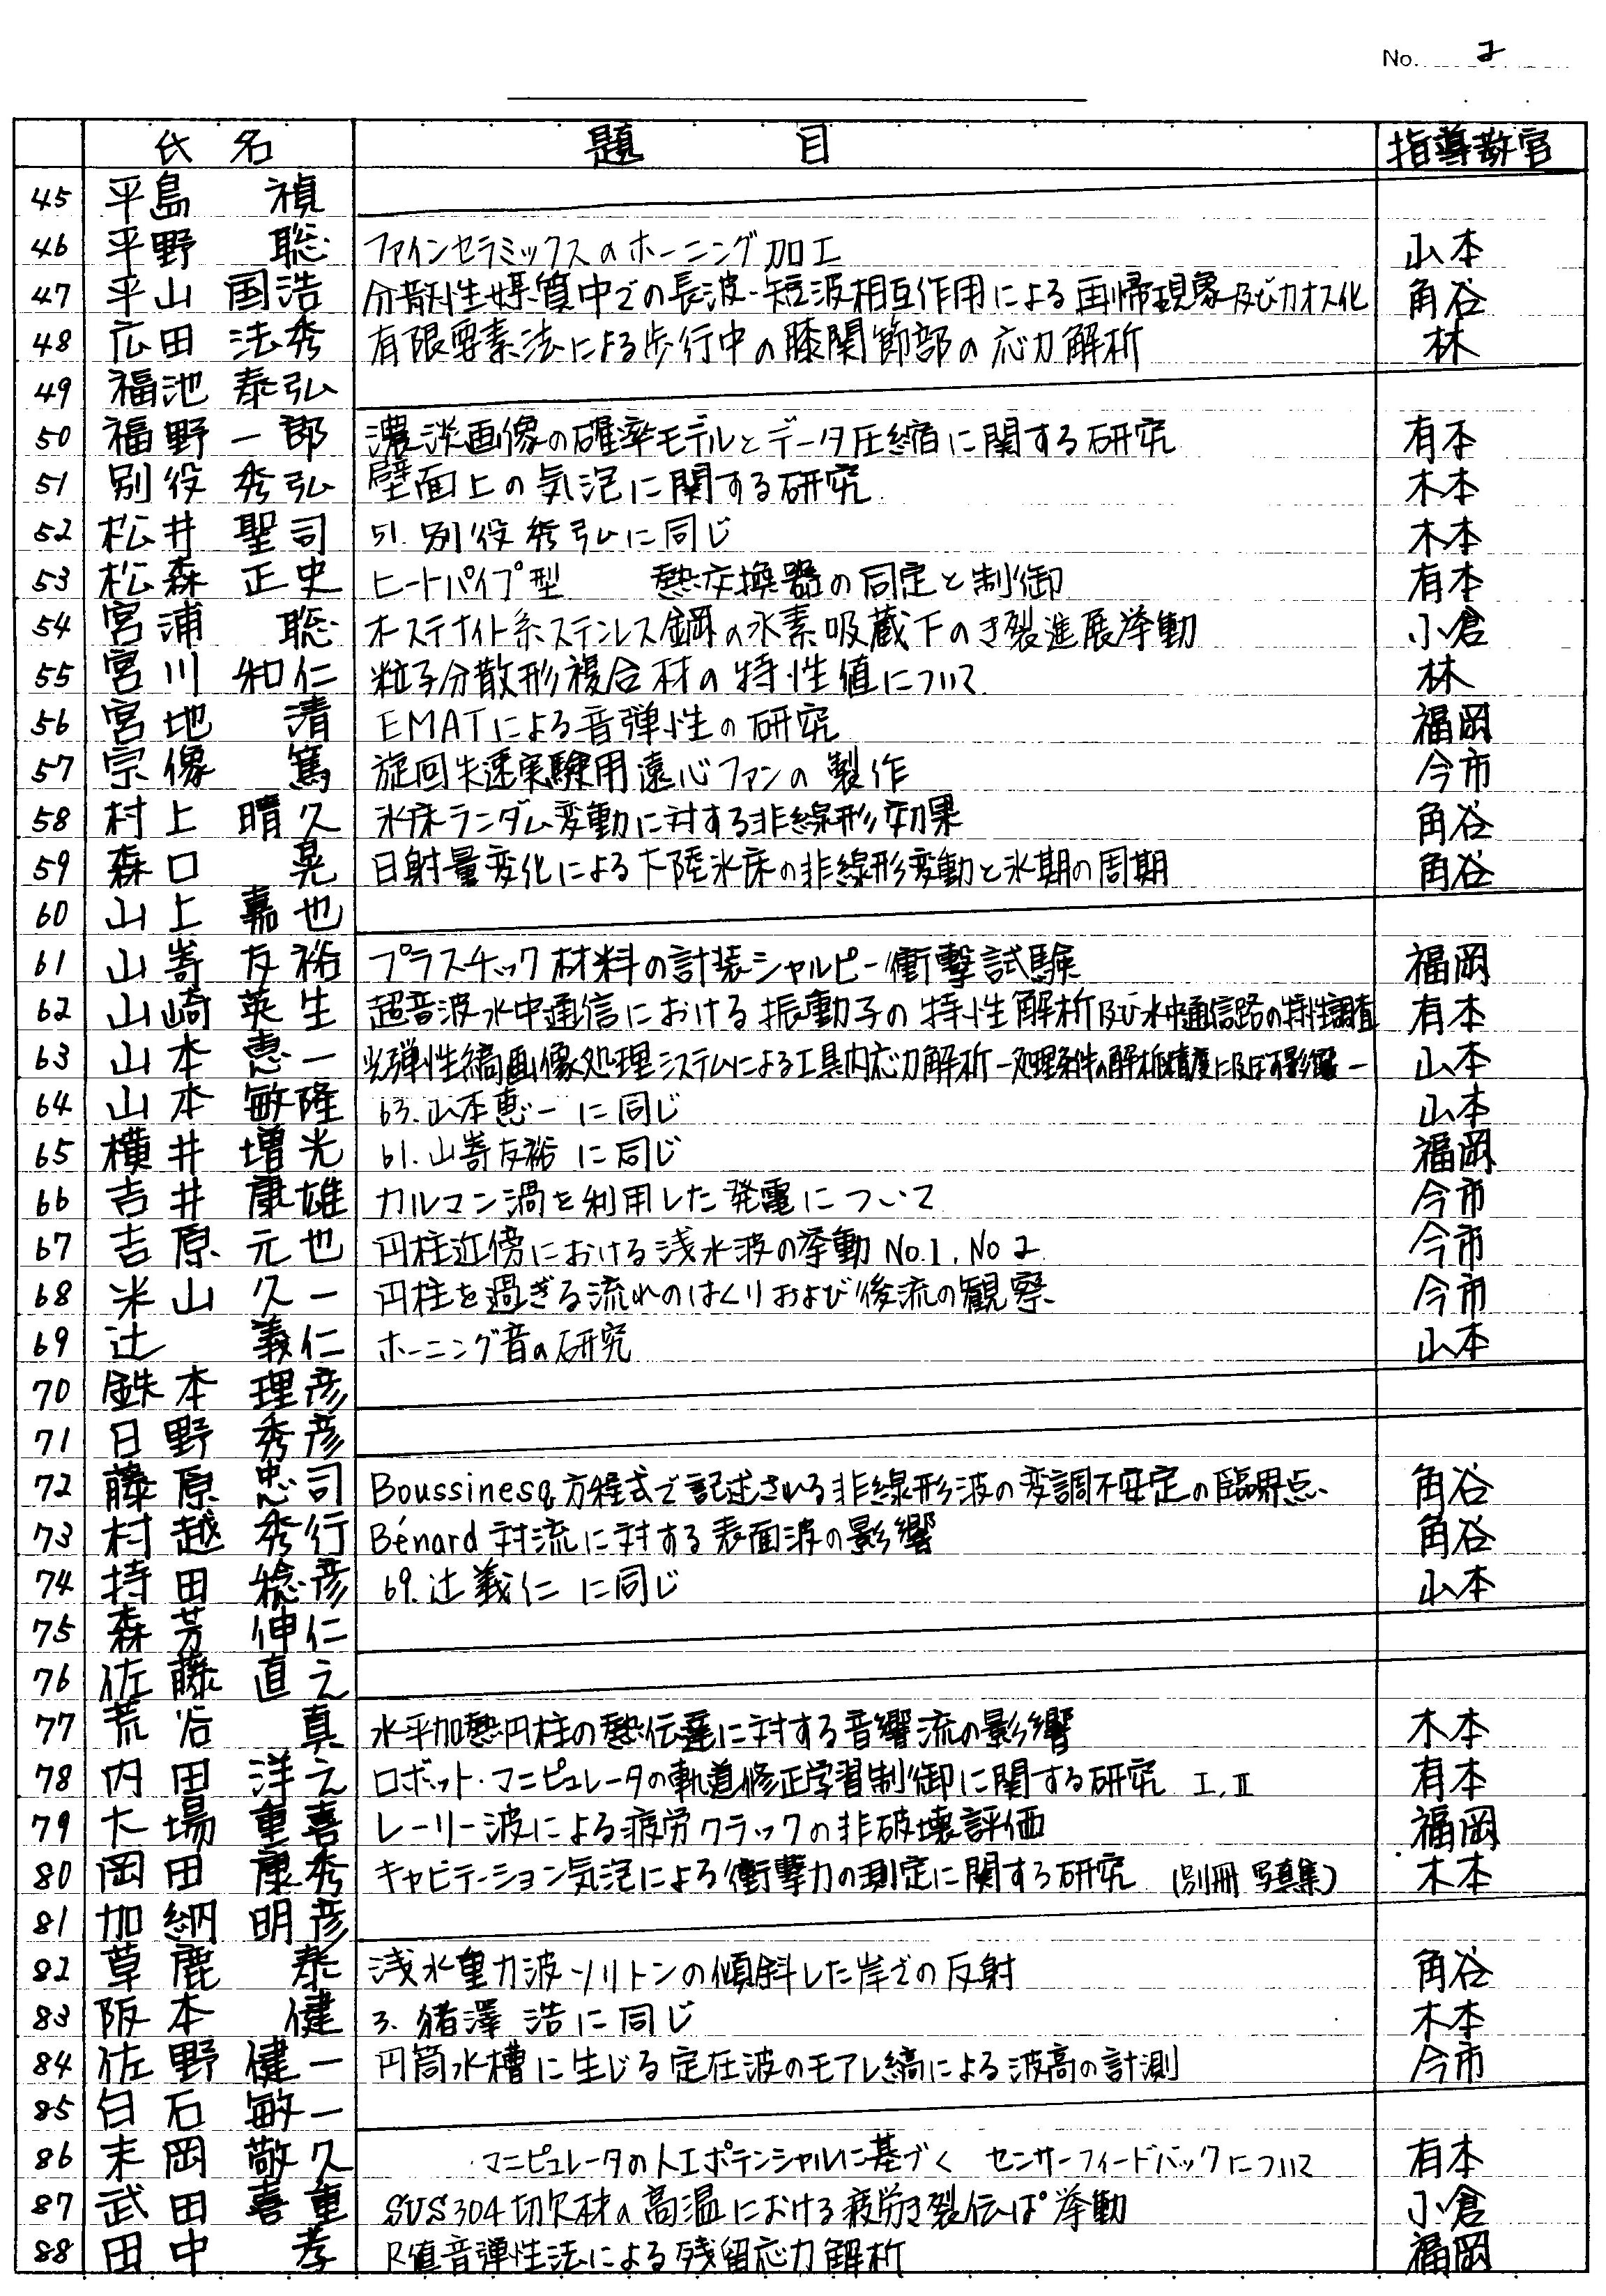 No. 2
氏名 題目 指導教官
45 平島 禎
46 平野 聡 ファインセラミックスのホーニング加工 山本
47 平山 国浩 分散性媒質中での長波・短波相互作用による再帰現象及びカオス化 角谷
48 広田 法秀 有限要素法による歩行中の膝関節部の応力解析 林
49 福池 泰弘
50 福野 一郎 濃淡画像の確率モデルとデータ圧縮に関する研究 有本
51 別役 秀弘 壁面上の気泡に関する研究 木本
52 松井 聖司 51. 別役秀弘に同じ 木本
53 松森 正史 ヒートパイプ型 熱交換器の同定と制御 有本
54 宮浦 聡 オーステナイト系ステンレス鋼の水素吸蔵下のき裂進展挙動 小倉
55 宮川 和仁 粒子分散形複合材の特性値について 林
56 宮地 清 EMATによる音弾性の研究 福岡
57 宗像 篤 旋回失速実験用遠心ファンの製作 今市
58 村上 晴久 氷床ランダム変動に対する非線形効果 角谷
59 森口 晃 日射量変化による大陸氷床の非線形変動と氷期の周期 角谷
60 山上 嘉也
61 山嵜 友裕 プラスチック材料の計装シャルピー衝撃試験 福岡
62 山崎 英生 超音波水中通信における振動子の特性解析及び水中通信路の特性調査 有本
63 山本 恵一 光弾性縞画像処理システムによる工具内応力解析―処理条件の解析精度に及ぼす影響― 山本
64 山本 敏隆 63. 山本恵一に同じ 山本
65 横井 増光 61. 山嵜友裕に同じ 福岡
66 吉井 康雄 カルマン渦を利用した発電について 今市
67 吉原 元也 円柱近傍における浅水波の挙動 No.1, No 2 今市
68 米山 久一 円柱を過ぎる流れのはくりおよび後流の観察 今市
69 辻 義仁 ホーニング音の研究 山本
70 鉃本 理彦
71 日野 秀彦
72 藤原 忠司 Boussinesq方程式で記述される非線形波の変調不安定の臨界点 角谷
73 村越 秀行 Bénard対流に対する表面波の影響 角谷
74 持田 稔彦 69. 辻義仁に同じ 山本
75 森芳 伸仁
76 佐藤 直之
77 荒谷 真 水平加熱円柱の熱伝達に対する音響流の影響 木本
78 内田 洋之 ロボット・マニピュレータの軌道修正学習制御に関する研究 I, II 有本
79 大場 重喜 レーリー波による疲労クラックの非破壊評価 福岡
80 岡田 康秀 キャビテーション気泡による衝撃力の測定に関する研究 (別冊 写真集) 木本
81 加納 明彦
82 草鹿 泰 浅水重力波ソリトンの傾斜した岸での反射 角谷
83 阪本 健 3. 猪澤 浩に同じ 木本
84 佐野 健一 円筒水槽に生じる定在波のモアレ縞による波高の計測 今市
85 白石 敏一
86 末岡 敬久 マニピュレータの人工ポテンシャルに基づく センサーフィードバックについて 有本
87 武田 喜重 SUS304切欠材の高温における疲労き裂伝ぱ挙動 小倉
88 田中 孝 R値音弾性法による残留応力解析 福岡